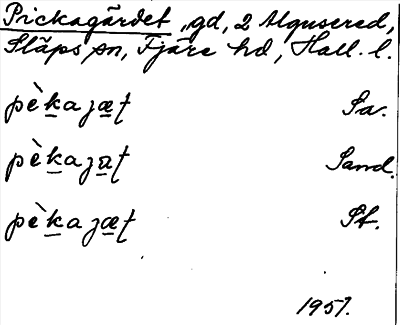 Pickagärdet, gd, 2 Algusered,
Släps sn, Fjäre hd, Hall. l.
pèkajæt Sa.
pèkajat Sand.
pèkajæt St.
1951.